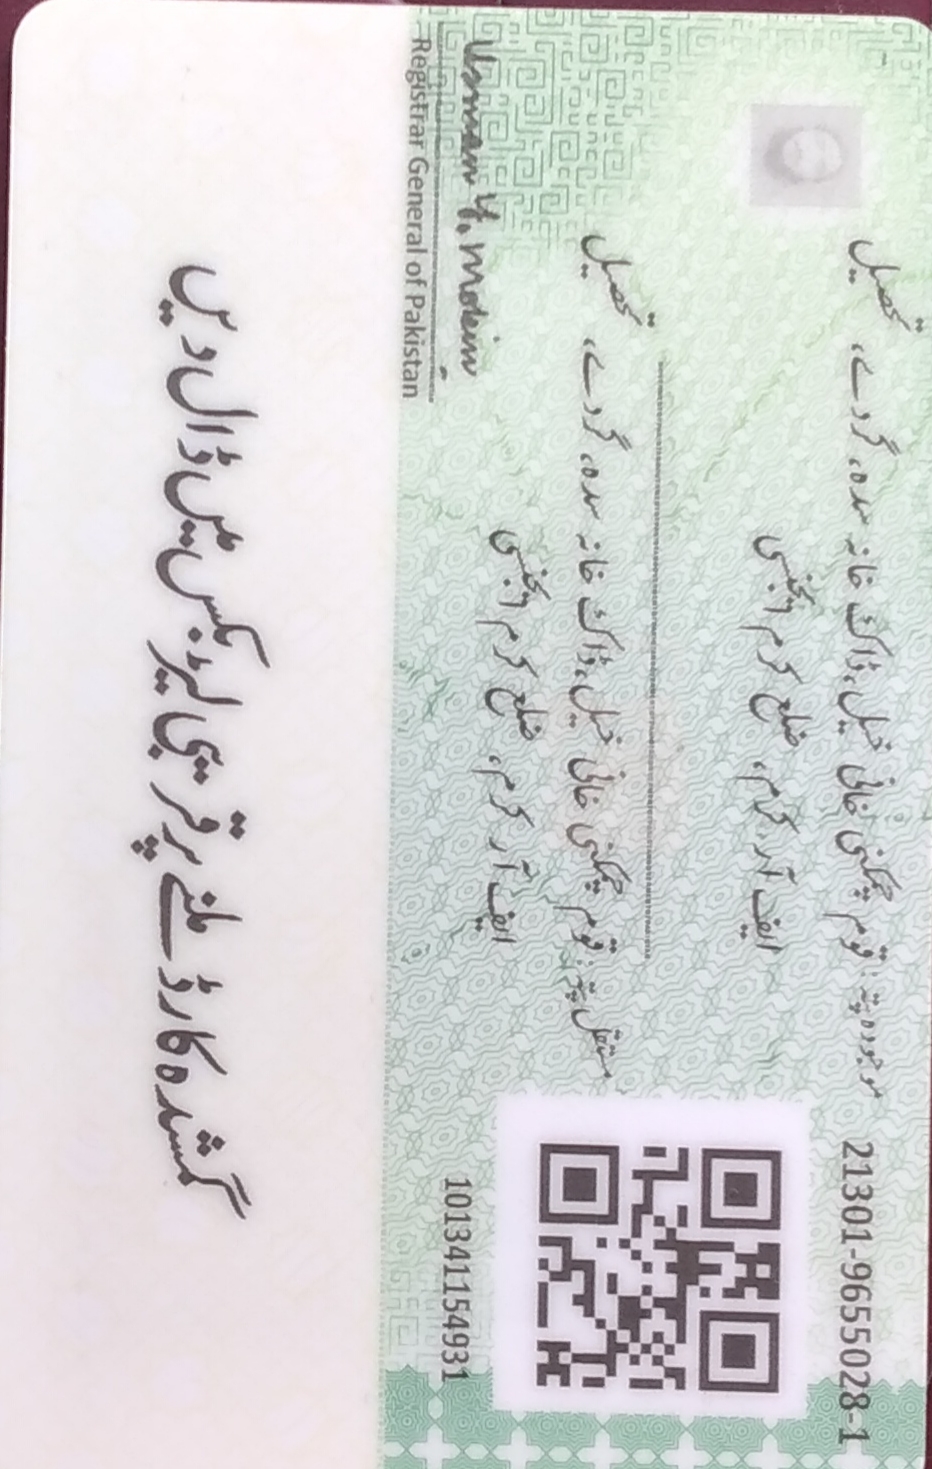 21301-9655028-1
موجودہ پتہ: قوم چمکنی خانی خیل، ڈاک خانہ سدہ، گردے، تحصیل
ایف آر کرم، ضلع کرم ایجنسی
مستقل پتہ: قوم چمکنی خانی خیل، ڈاک خانہ سدہ، گردے، تحصیل
ایف آر کرم، ضلع کرم ایجنسی
101341154931
Usman Y. Mobin
Registrar General of Pakistan
گمشدہ کارڈ ملنے پر قریبی لیٹر بکس میں ڈال دیں